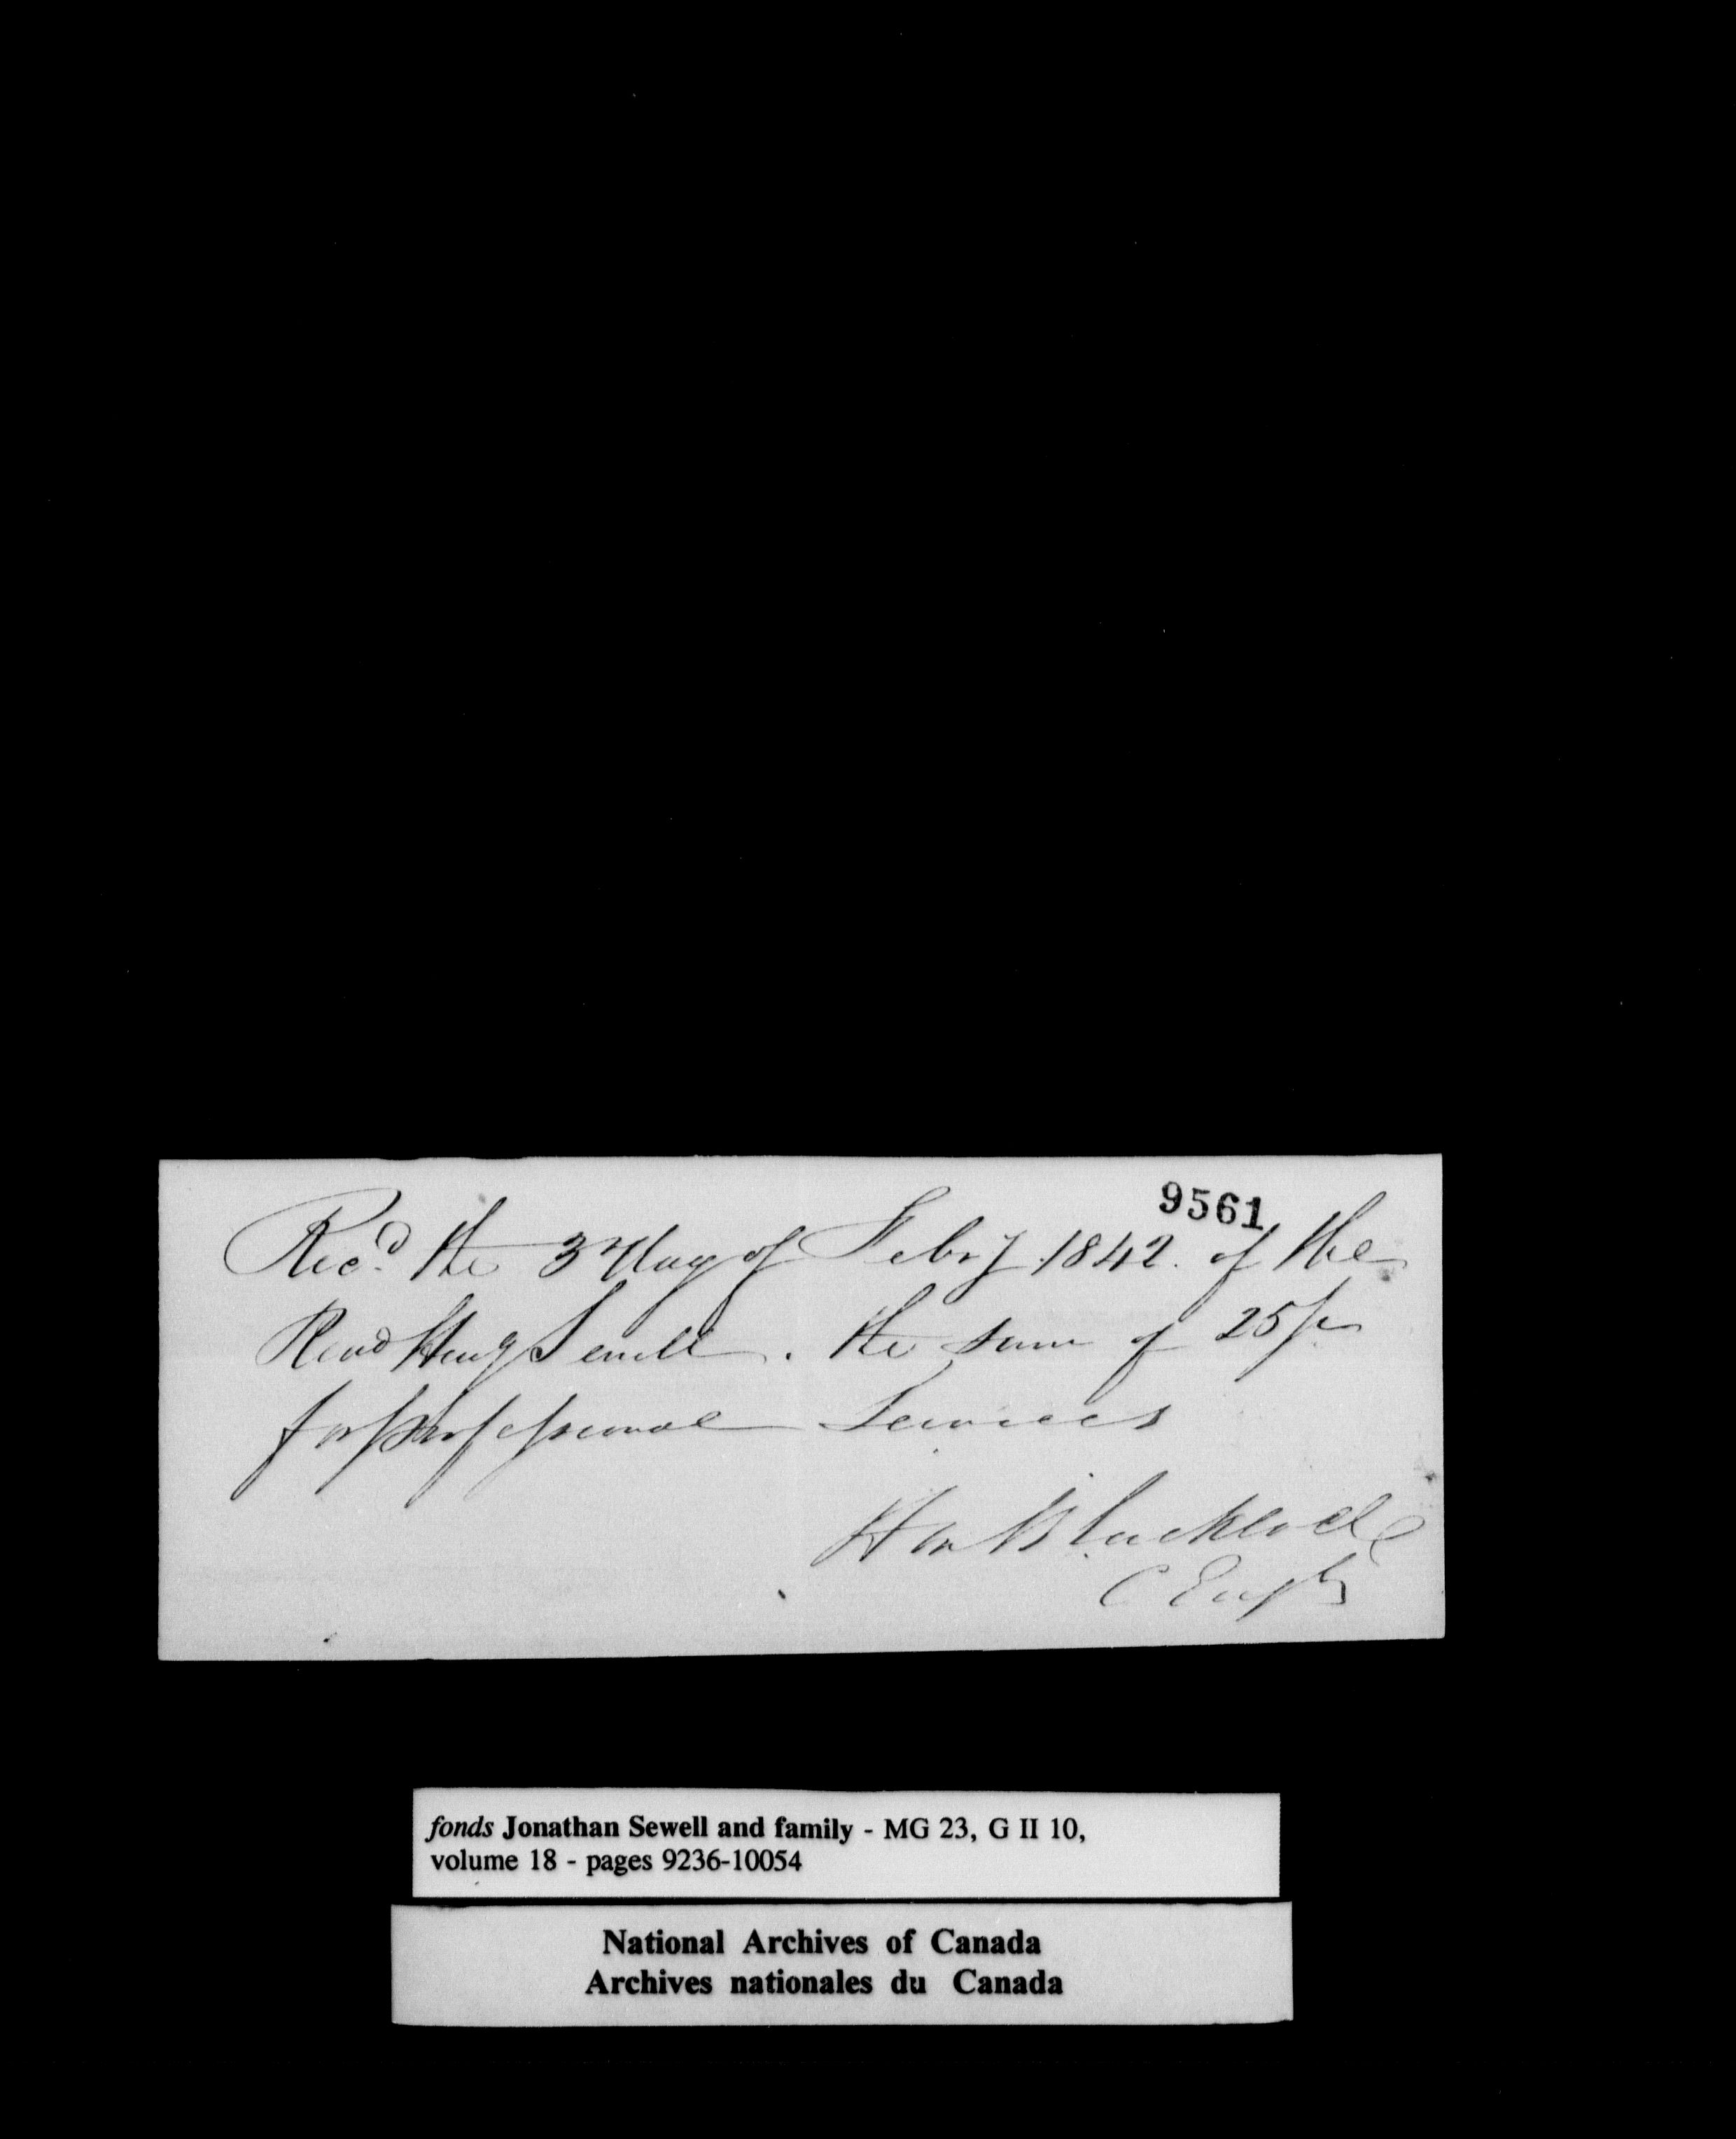 9561
Recd. the 3rd day of Febry 1842. of the
Revd Henry Sewell. the sum of 25/-
for professional Services
Wm Blacklock
fonds Jonathan Sewell and family - MG 23, G II 10,
volume 18 - pages 9236-10054
National Archives of Canada
Archives nationales du Canada